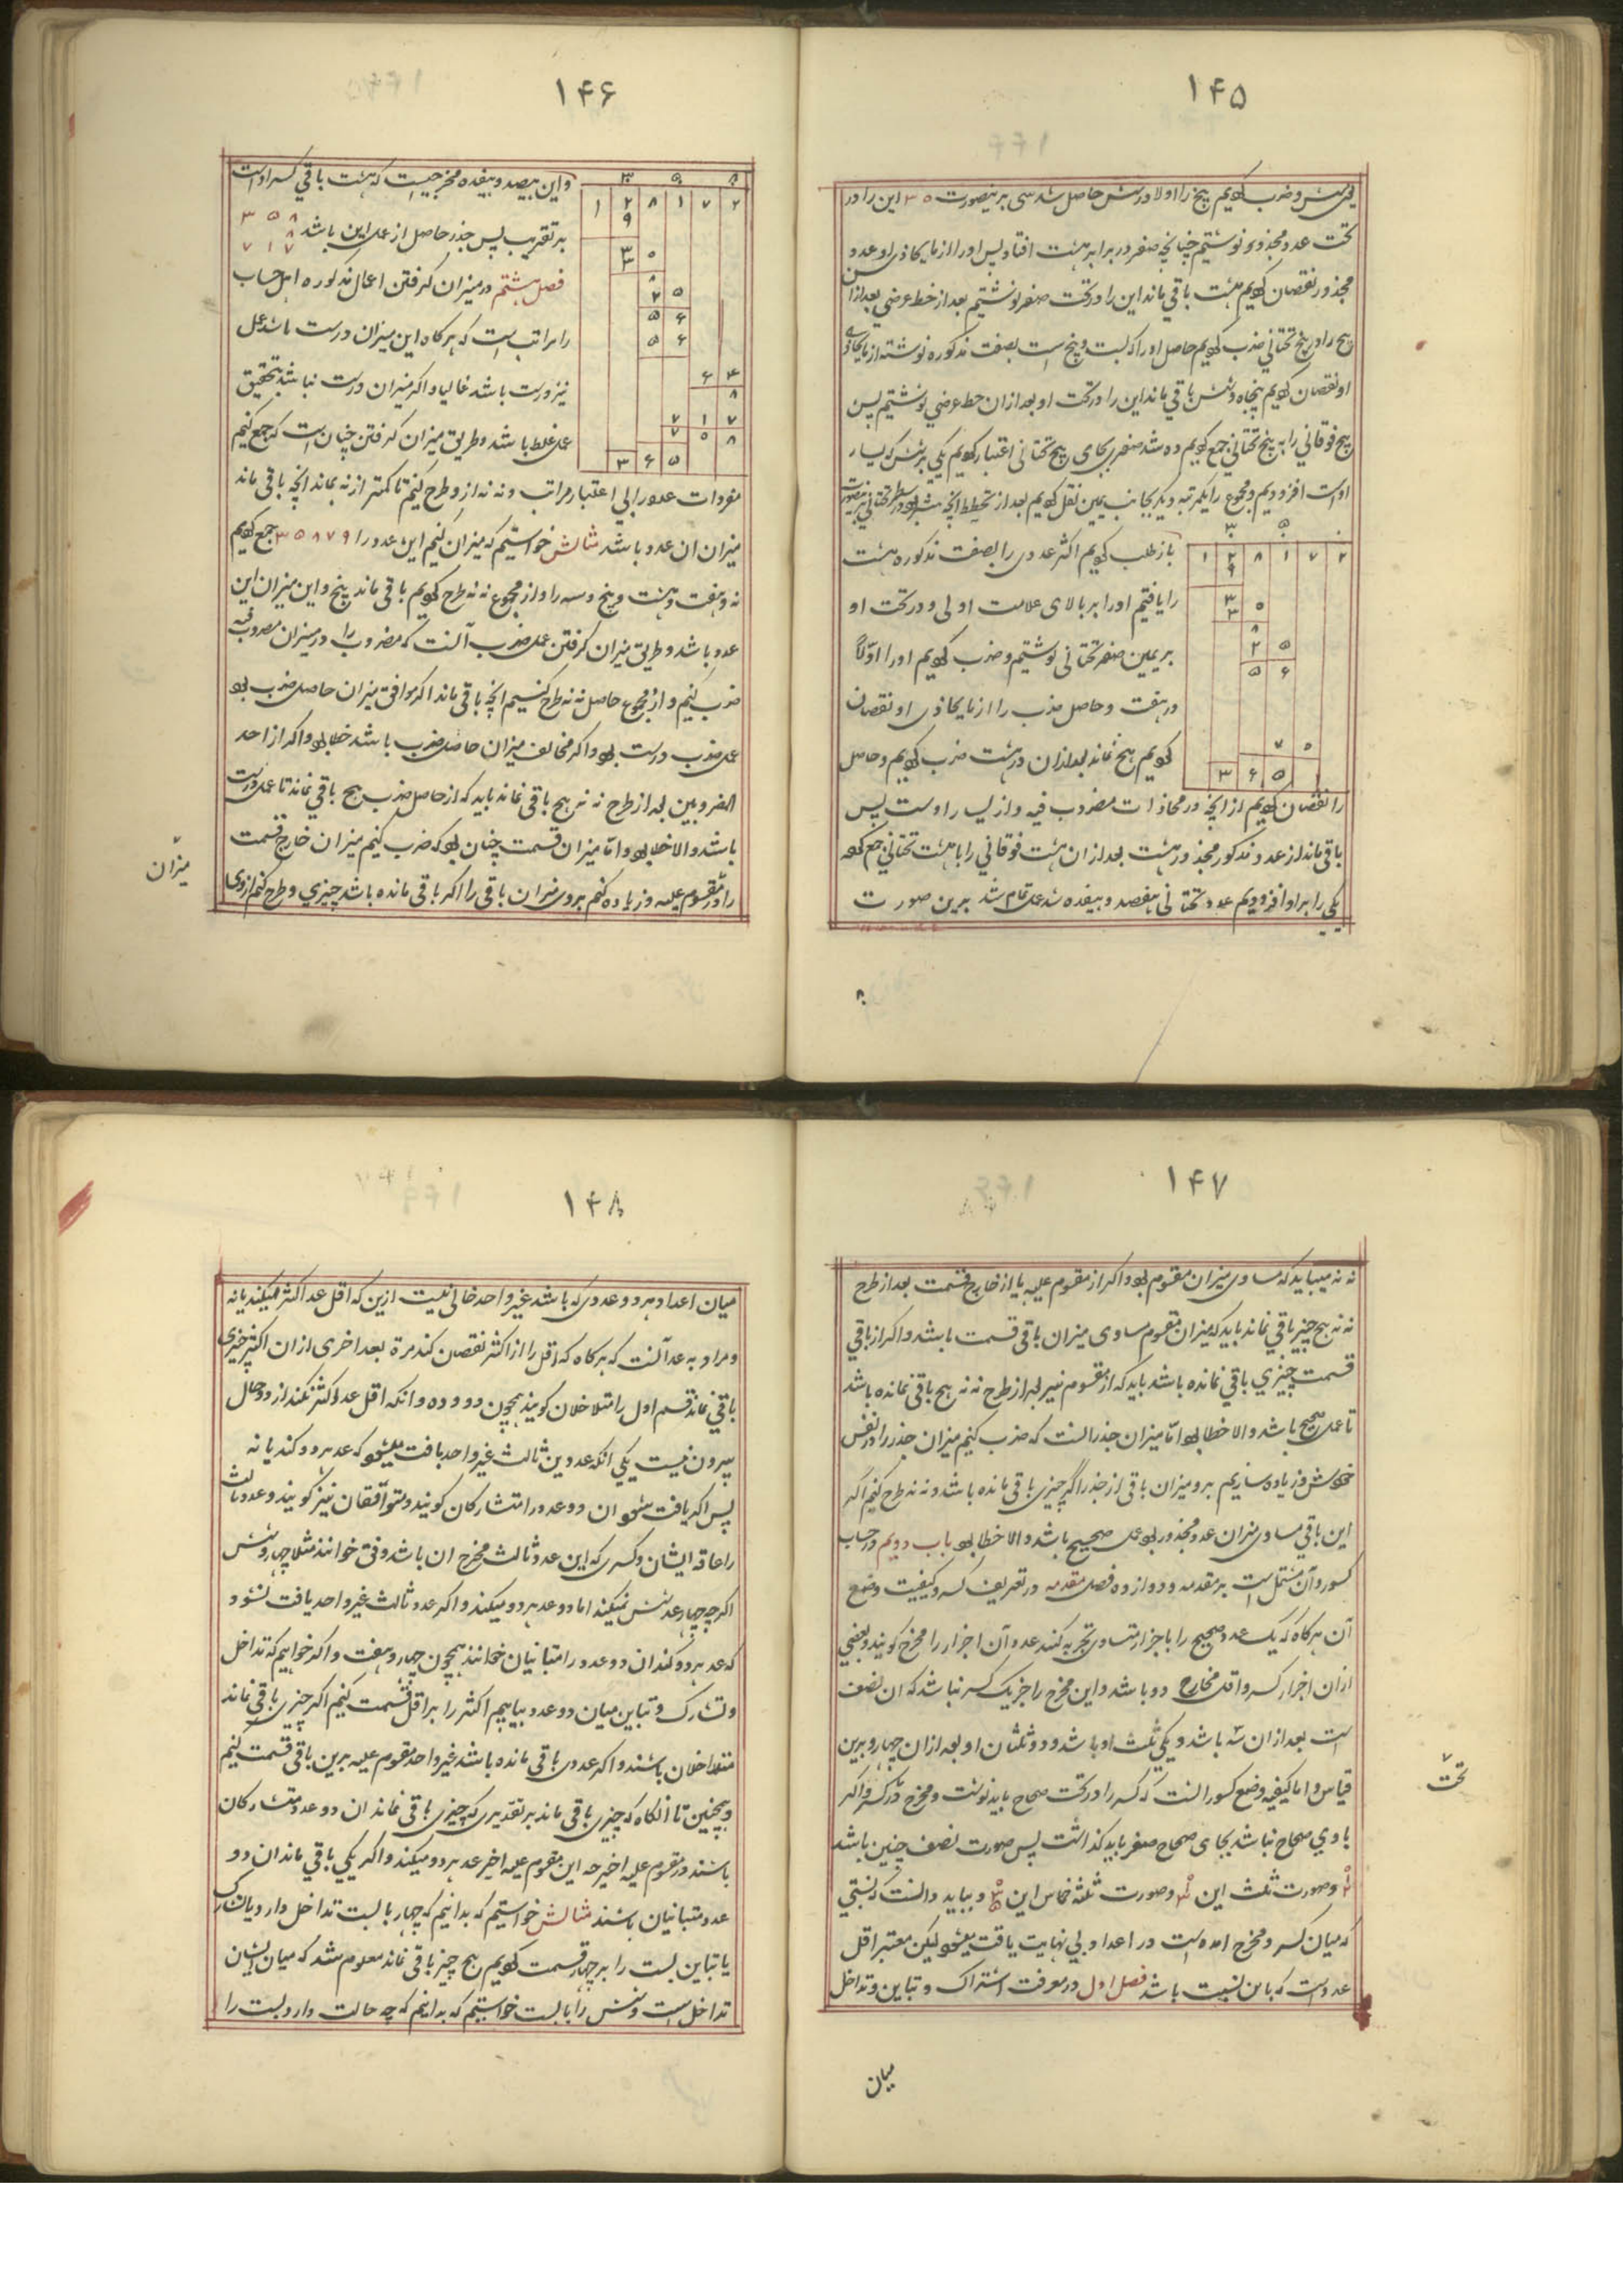 ۱۴۵
تحت عدد مجذور نوشتیم چنانچه صفر در برابر هشت افتاد پس او را از مایحاذی او عدد
مجذور نقصان کردیم هشت باقی ماند این را در تحت صفر نوشتیم بعد از خط عرضی بعد از آن
پنج را در پنج تحتانی ضرب کردیم حاصل او را که بیست و پنج است بصفت مذکوره نوشته از مایحاذی
او نقصان کردیم پنجاه و شش باقی ماند این را در تحت او بعد از ان خط عرضی نوشتیم پس
پنج فوقانی را به پنج تحتانی جمع کردیم ده شد صفری بجای پنج تحتانی اعتبار کردیم یکی بر شش که یسار
او است افزودیم و مجموع را یکمرتبه دیگر بجانب یمین نقل کردیم بعد از تخطیط
۳ ۵
۱ ۲ ۸ ۱ ۷ ۲
۹
۳ ۵
۳
۸
۲ ۵
۵ ۶
۷ ۰
۳ ۶ ۵
باز طلب کردیم اکثر عددی را بصفت مذکوره هشت
را یافتیم او را بر بالای علامت اولی و در تحت او
بر یمین صفر تحتانی نوشتیم و ضرب کردیم او را اولا
در هفت و حاصل ضرب را از مایحاذی او نقصان
کردیم هیچ نماند بعد از ان در هشت ضرب کردیم و حاصل
را نقصان کردیم از انچه در محاذات مضروب فیه و از یسار اوست پس
باقی ماند از عدد مذکور مجذور هشت بعد از ان هشت فوقانی را با هشت تحتانی جمع کرده
یکی را بر او افزودیم عدد تحتانی هفصد و هیفده شد عمل تمام شد برین صورت
۱۴۶
۳ ۵ ۸
۱ ۲ ۸ ۱ ۷ ۲
۹
۳ ۵
۳
۸
۲ ۵
۵ ۶
۵ ۶
۶ ۴
۸
۷ ۱ ۷
۷ ۰ ۸
۳ ۶ ۵
و این هفصد و هیفده مخرجیست که هشت باقی کسر او است
بر تقریب پس جذر حاصل از عمل این باشد ۳ ۵ ۸
۸
۷ ۱ ۷
فصل هشتم در میزان گرفتن اعمال مذکوره اهل حساب
را مراتب است که هرگاه این میزان درست باشد عمل
نیز درست باشد غالبا و اگر میزان درست نباشد بتحقیق
عمل غلط باشد و طریق میزان گرفتن چنان است که جمع کنیم
مفردات عدد را بی اعتبار مراتب و نه نه از و طرح کنیم تا کمتر از نه بماند انچه باقی ماند
میزان ان عدد باشد مثالش خواستیم که میزان کنیم این عدد را ۳۵۸۷۹ جمع کردیم
نه و هفت و هشت و پنج و سه را و از مجموع نه نه طرح کردیم باقی ماند پنج و این میزان این
عدد باشد و طریق میزان گرفتن عمل ضرب آنست که مضروب را در میزان مضروب فیه
ضرب کنیم و از مجموع حاصل نه نه طرح کنیم انچه باقی ماند اگر موافق میزان حاصل ضرب بود
عمل ضرب درست بود و اگر مخالف میزان حاصل ضرب باشد خطا بود و اگر از احد
المضروبین بعد از طرح نه نه هیچ باقی نماند باید که از حاصل ضرب هیچ باقی نماند تا عمل درست
باشد و الا خطا بود و اما میزان قسمت چنان بود که ضرب کنیم میزان خارج قسمت
را در مقسوم علیه و زیاده کنیم بر وی میزان باقی را اگر باقی مانده باشد چیزی و طرح کنیم از وی
میزان
۱۴۷
نه نه میباید که مساوی میزان مقسوم بود و اگر از مقسوم علیه یا از خارج قسمت بعد از طرح
نه نه هیچ چیز باقی نماند باید که میزان مقسوم مساوی میزان باقی قسمت باشد و اگر از باقی
قسمت چیزی باقی نمانده باشد باید که از مقسوم نیز بعد از طرح نه نه هیچ باقی نمانده باشد
تا عمل صحیح باشد و الا خطا بود اما میزان جذر آنست که ضرب کنیم میزان جذر را در نفس
خودش و زیاده سازیم بر و میزان باقی از جذر اگر چیزی باقی مانده باشد و نه نه طرح کنیم اگر
این باقی مساوی میزان عدد مجذور بود عمل صحیح باشد و الا خطا بود باب دویم در حساب
کسور و آن مشتمل است بر مقدمه و دوازده فصل مقدمه در تعریف کسر و کیفیت وضع
آن هرگاه که یک عدد صحیح را باجزاء متساوی تجزیه کنند عدد آن اجزاء را مخرج کویند و بعضی
از ان اجزاء را کسر و اقل مخارج دو باشد و این مخرج را جز یک کسر نباشد که ان نصف
است بعد از ان سه باشد و یکی ثلث او باشد و دو ثلثان او بعد از ان چهار و برین
قیاس و اما کیفیه وضع کسور آنست که کسر را در تحت صحاح باید نوشت و مخرج در تحت کسر و اگر
با وی صحاح نباشد بجای صحاح صفر باید گذاشت پس صورت نصف چنین باشد
و صورت ثلث این و صورت ثلثه خماس این و بباید دانست که نسبتی
که میان کسر و مخرج آمده است در اعداد بی نهایت یافت میشود لیکن معتبر اقل
عدد است که باین نسبت باشد فصل اول در معرفت اشتراک و تباین و تداخل
تحت
میان
۱۴۸
میان اعداد هر دو عددی که باشد غیر واحد خالی نیست ازین که اقل عد اکثر میکند یا نه
و مراد به عد آنست که هرگاه که اقل را از اکثر نقصان کند مرة بعد اخری از ان اکثر چیزی
باقی نماند قسم اول را متداخلان گویند همچون دو و ده و انکه اقل عد اکثر نکند از دو حال
بیرون نیست یکی انکه عددین ثالث غیر واحد یافت میشود که عد هر دو کند یا نه
پس اگر یافت شود ان دو عدد را متشارکان گویند و متوافقان نیز گویند و عدد ثالث
را عاد ایشان و کسری که این عدد ثالث مخرج ان باشد وفق خوانند مثلا چهار و شش
اگر چه چهار عد شش نمیکند اما دو عد هر دو میکند و اگر عدد ثالث غیر واحد یافت نشود
که عد هر دو کند ان دو عدد را متباینان خوانند همچون چهار و هفت و اگر خواهیم که تداخل
و تشارک و تباین میان دو عدد بیابیم اکثر را بر اقل قسمت کنیم اگر چیزی باقی نماند
متداخلان باشند و اگر عددی باقی مانده باشد غیر واحد مقسوم علیه برین باقی قسمت کنیم
و همچنین تا آنگاه که چیزی باقی ماند بر تقدیری که چیزی باقی نماند ان دو عدد متشارکان
باشند و مقسوم علیه اخیر عد هر دو میکند و اگر یکی باقی ماند ان دو
عدد متباینان باشند مثالش خواستیم که بدانیم که چهار با بیست تداخل دارد یا تشارک
یا تباین بیست را بر چهار قسمت کردیم هیچ چیز باقی نماند معلوم شد که میان ایشان
تداخل است و شش را با بیست خواستیم که بدانیم که چه حالت دارد بیست را